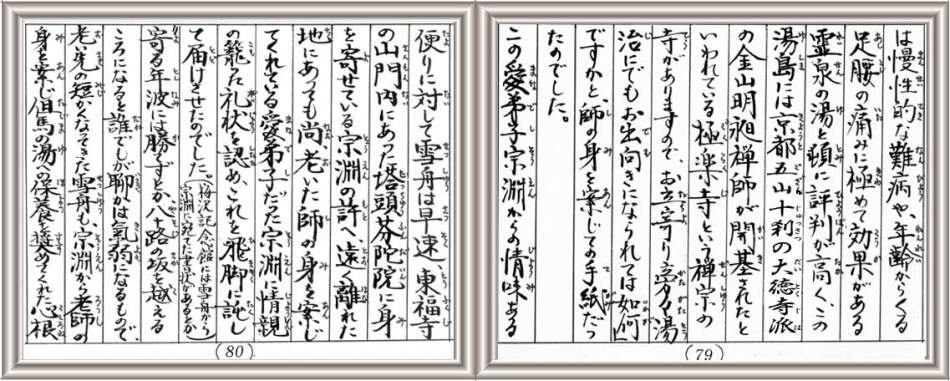 は慢性的な難病や、年齢からくる
足腰の痛みに極めて効果がある
霊泉の湯と頓に評判が高く、この
湯島には京都五山十刹の大徳寺派
の金山明昶禅師が開基されたと
いわれている極楽寺という禅宗の
寺がありますので、お立寄り旁々湯
治にでもお出向きになられては如何
ですかと、師の身を案じての手紙だっ
たのでした。
この愛弟子宗淵からの情味ある
(79)
便りに対して雪舟は早速、東福寺
の山門内にあった塔頭芬陀院に身
を寄せている宗淵の許へ遠く離れた
地にあっても尚、老いた師の身を案じ
てくれている愛弟子だった宗淵に情誼
の籠った礼状を認め、これを飛脚に託し
て届けさせたのでした。
宗淵に宛てた書状があるとか
寄る年波には勝てずとか、八十路の坂を越える
ころになると誰でしが聊かは気弱になるもので、
老先の短かくなってきた雪舟も、宗淵から老師の
身を案じ但馬の湯への保養を奨めてくれた心根
(80)